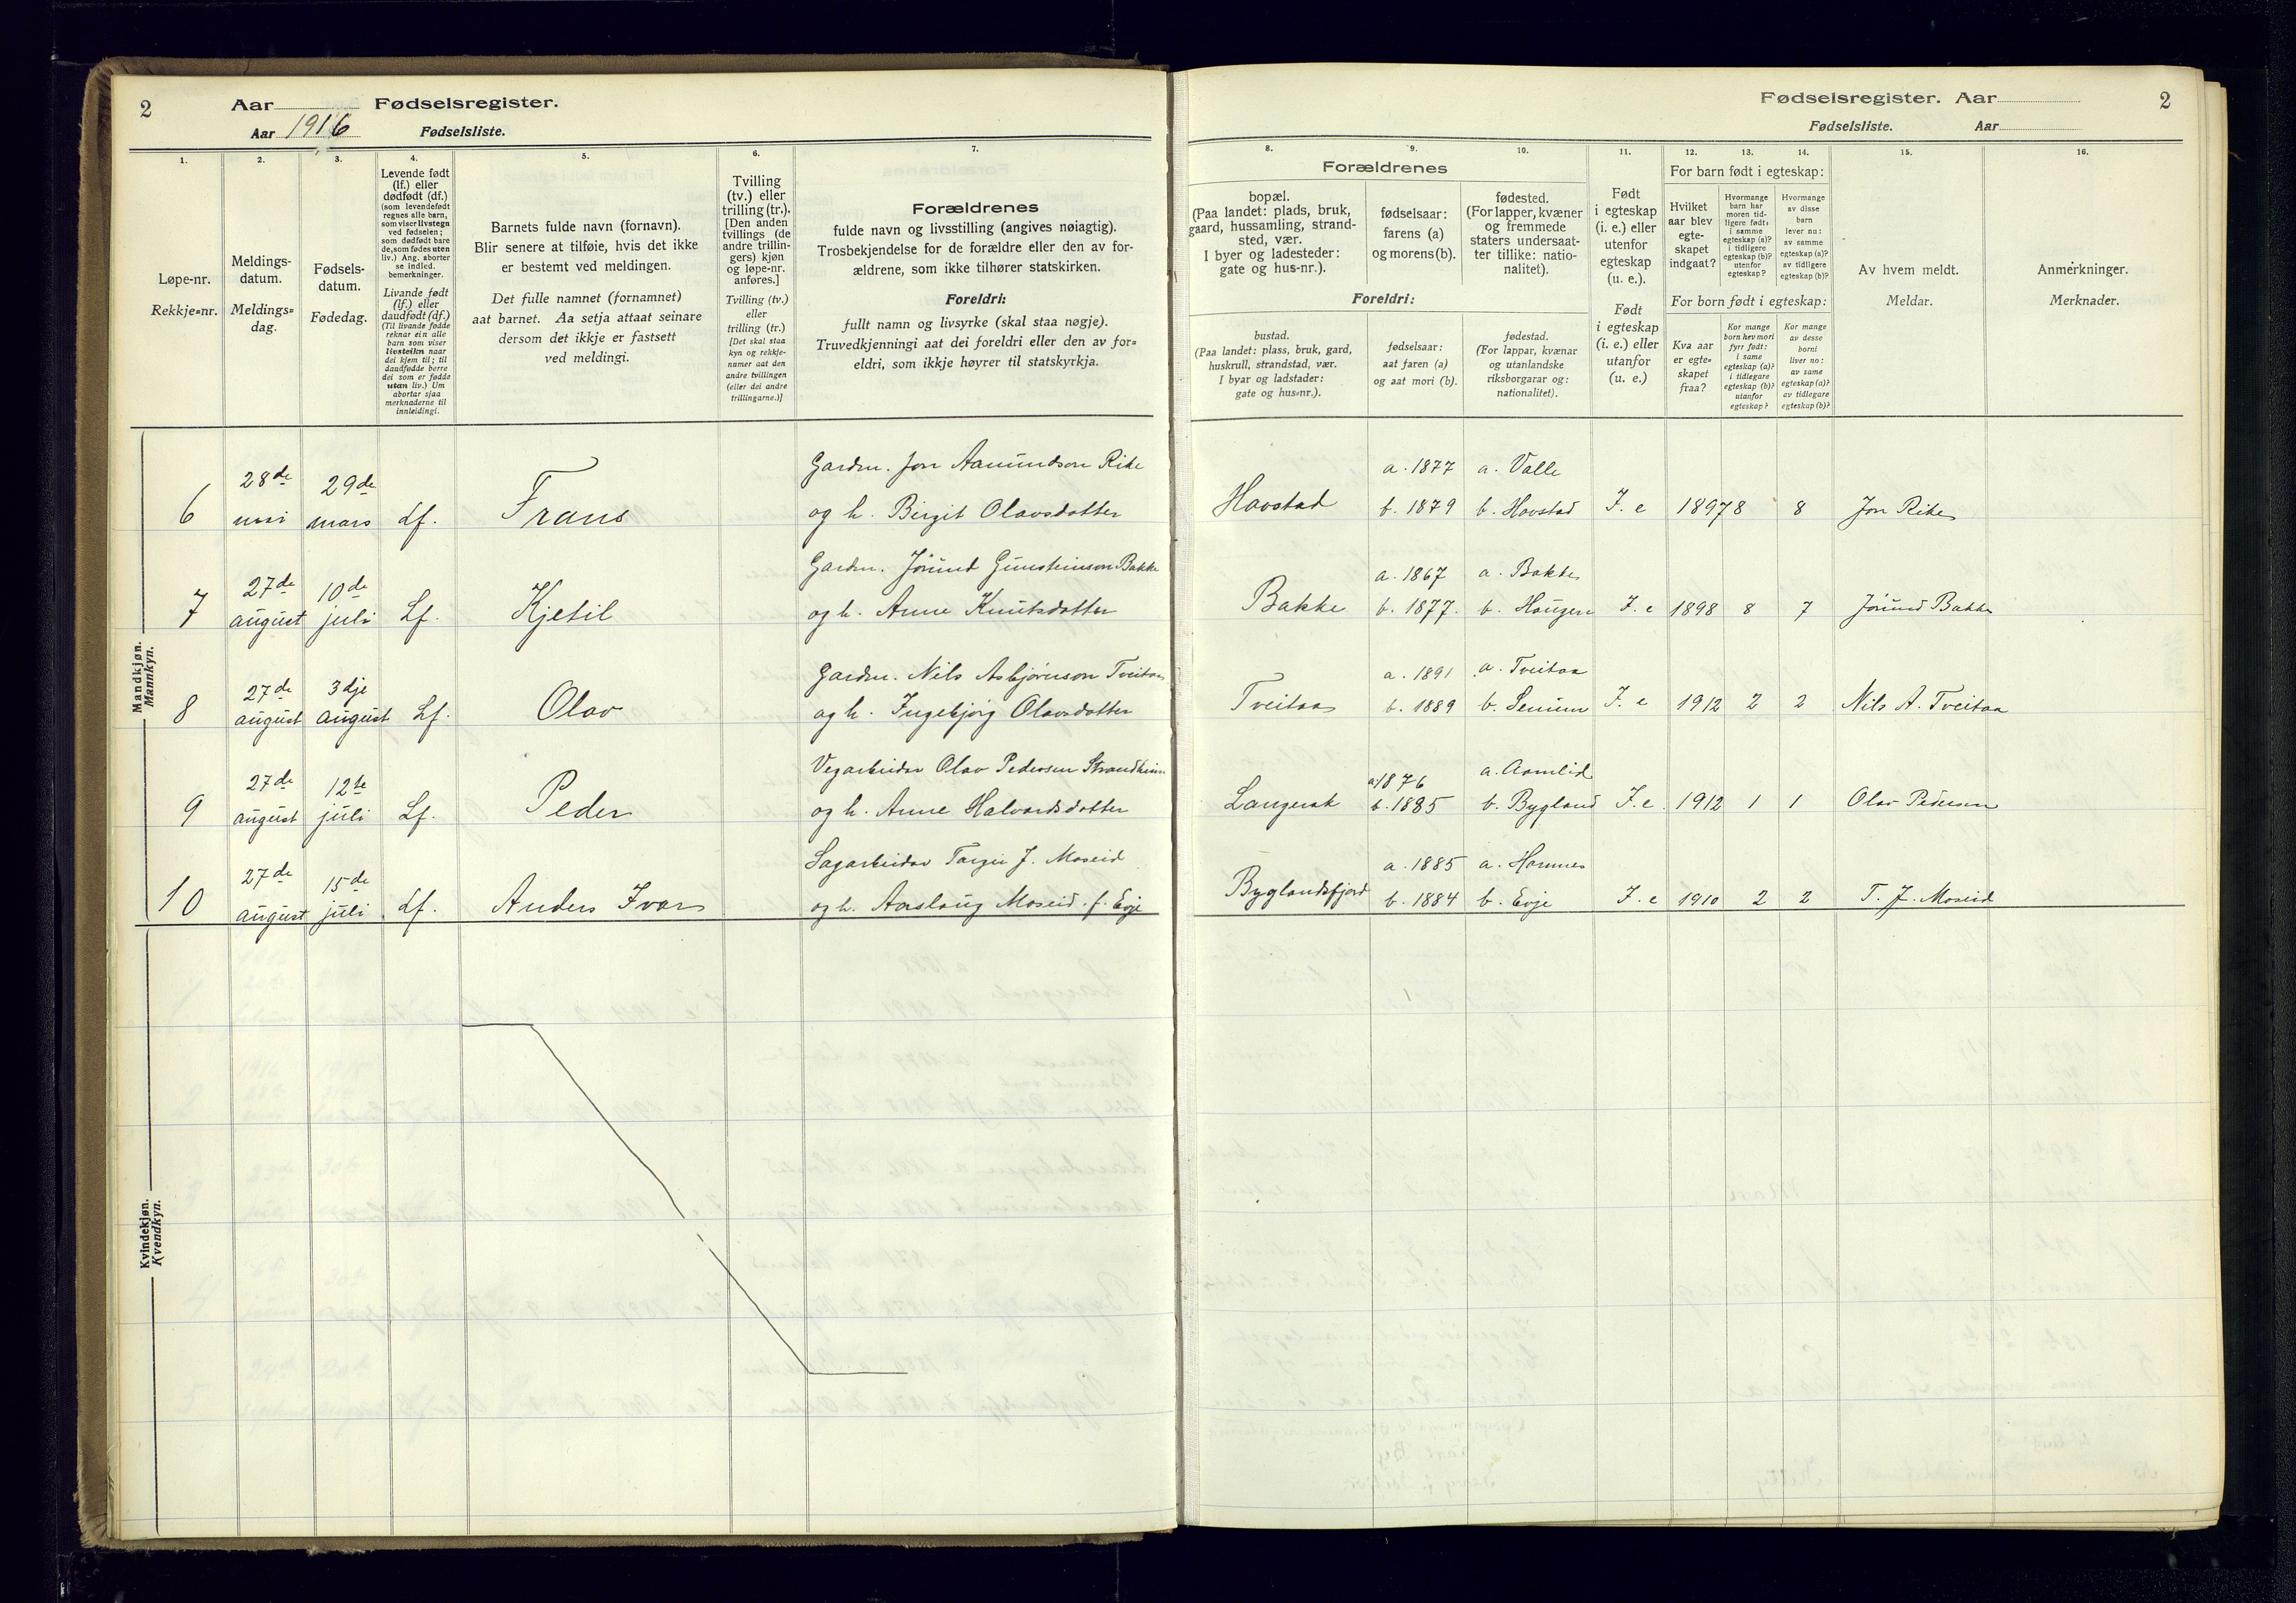 2 Aar Fødselsregister.
Aar 1916 Fødselsliste.
Fødselsregister. Aar 2
Fødselsliste. Aar
1. 2. 3. 4. 5. 6. 7. 8. 9. 10. 11. 12. 13. 14. 15. 16.
Løpe-nr.
Rekkje=nr.
Meldings-
datum.
Meldings=
dag.
Fødsels-
datum.
Fødedag.
Levende født
(lf.) eller
dødfødt (df.)
(som levendefødt
regnes alle barn,
som viser livstegn
ved fødselen;
som dødfødt bare
de, som fødes uten
liv.) Ang. aborter
se indled.
bemerkninger.
Livande født
(lf.) eller
daudfødt (df.)
(Til livande fødde
reknar ein alle
barn som viser
livsteikn naar
dei kjem til; til
daudfødde berre
dei som er fødde
utan liv.) Um
abortar sjaa
merknaderne til
innleidingi.
Barnets fulde navn (fornavn).
Blir senere at tilføie, hvis det ikke
er bestemt ved meldingen.
Det fulle namnet (fornamnet)
aat barnet. Aa setja attaat seinare
dersom det ikkje er fastsett
ved meldingi.
Tvilling
(tv.) eller
trilling (tr.).
[Den anden
tvillings (de
andre trillin-
gers) kjøn
og løpe-nr.
anføres.]
Tvilling (tv.)
eller
trilling (tr.)
[Det skal staa
kyn og rekkje-
numer aat den
andre tvillingen
(eller dei andre
trillingarne.)]
Forældrenes
fulde navn og livsstilling (angives nøiagtig).
Trosbekjendelse for de forældre eller den av for-
ældrene, som ikke tilhører statskirken.
Foreldri:
fullt namn og livsyrke (skal staa nøgje).
Truvedkjenningi aat dei foreldri eller den av for=
eldri, som ikkje høyrer til statskyrkja.
Forældrenes
bopæl.
(Paa landet: plads, bruk,
gaard, hussamling, strand-
sted, vær.
I byer og ladesteder:
gate og hus-nr.).
fødselsaar:
farens (a)
og morens (b).
fødested.
(For lapper, kvæner
og fremmede
staters undersaat-
ter tillike: natio-
nalitet).
Foreldri:
bustad.
(Paa landet: plass, bruk, gard,
huskrull, strandstad, vær.
I byar og ladstader:
gate og hus=nr.).
fødselsaar:
aat faren (a)
og aat mori (b).
fødestad.
(For lappar, kvænar
og utanlandske
riksborgarar og:
nationalitet).
Født
i egteskap
(i. e.) eller
utenfor
egteskap
(u. e.).
Født
i egteskap
(i. e.) eller
utanfor
(u. e.)
For barn født i egteskap:
Hvilket
aar blev
egte-
skapet
indgaat?
Hvormange
barn har
moren tid-
ligere født:
i samme
egteskap (a)?
i tidligere
egteskap (b)?
utenfor
egteskap?
Hvormange
av disse
barn
lever nu:
av samme
egteskap (a)?
av tidligere
egteskap (b)?
For born født i egteskap:
Kva aar
er egte=
skapet
fraa?
Kor mange
born hev mori
fyrr født:
i same
egteskap (a)?
i tidlegare
egteskap (b)?
utanfor
egteskap?
Kor mange
av desse
borni
liver no:
av same
egteskap (a)?
av tidlegare
egteskap (b)?
Av hvem meldt.
Meldar.
Anmerkninger.
Merknader.
Mandkjøn.
Mannkyn.
28de 29de Gardm. Jon Aamundson Rike a. 1877 a. Valle
6 mai mars Lf. Frans og h. Birgit Olavsdotter Havstad b. 1879 b. Havstad I. e 1897 8 8 Jon Rike
27de 10de Gardm. Jórund Gunsteinson Bakke a. 1867 a. Bakke
7 august juli Lf. Kjetil og h. Anne Knutsdotter Bakke b. 1877. b. Haugen I. e 1898 8 7 Jórund Bakke
27de 3dje Gardm. Nils Asbjórnson Tveitaa a. 1891 a. Tveitaa
8 august august Lf. Olav og h. Ingebjórg Olavsdotter Tveitaa b. 1889 b. Senum I. e 1912 2 2 Nils A. Tveitaa
27de 12te Vegarbeidar Olav Pedersen Strandheim a 1876 a. Aamlid
9 august juli Lf. Peder og h. Anne Halvardsdotter Langerak b. 1885 b. Bygland I. e. 1912 1 1 Olav Pedersen
27de 15de Sagarbeidar Targei J. Moseid a. 1885 a. Hornnes
10 august juli Lf. Anders Ivar og h. Aaslaug Moseid f. Evje Byglandsfjord b. 1884 b. Evje I. e 1910 2 2 T. J. Moseid
Kvindekjøn.
Kvendkyn.